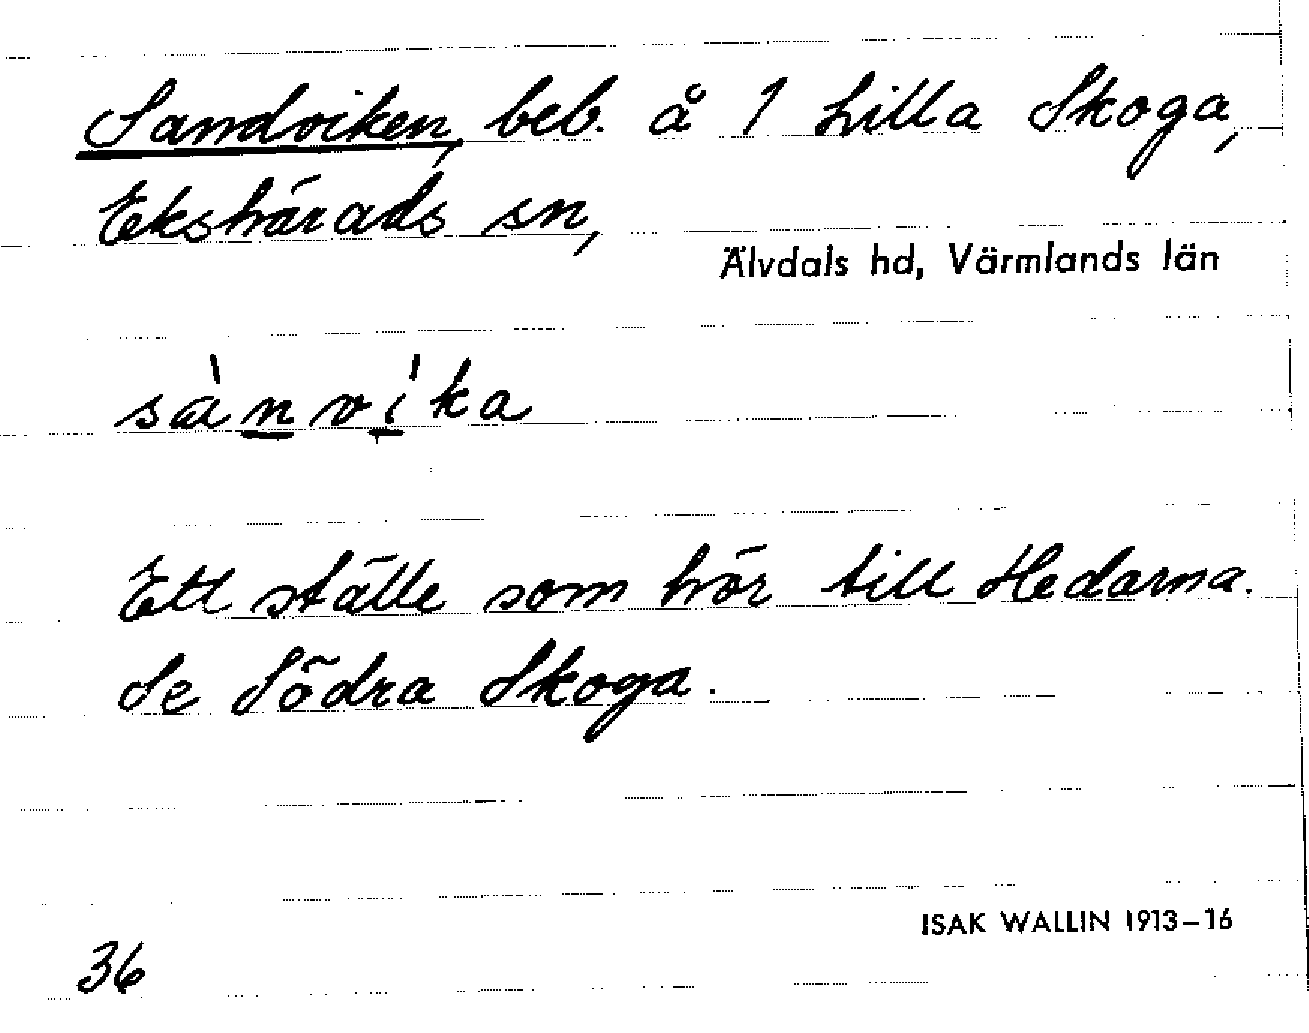 Sandviken, beb. å 1 Lilla Skoga,
Ekshärads sn,
Älvdals hd, Värmlands län
sànvíka
Ett ställe som hör till Hedarna.
Se Södra Skoga.
ISAK WALLIN 1913–16
36